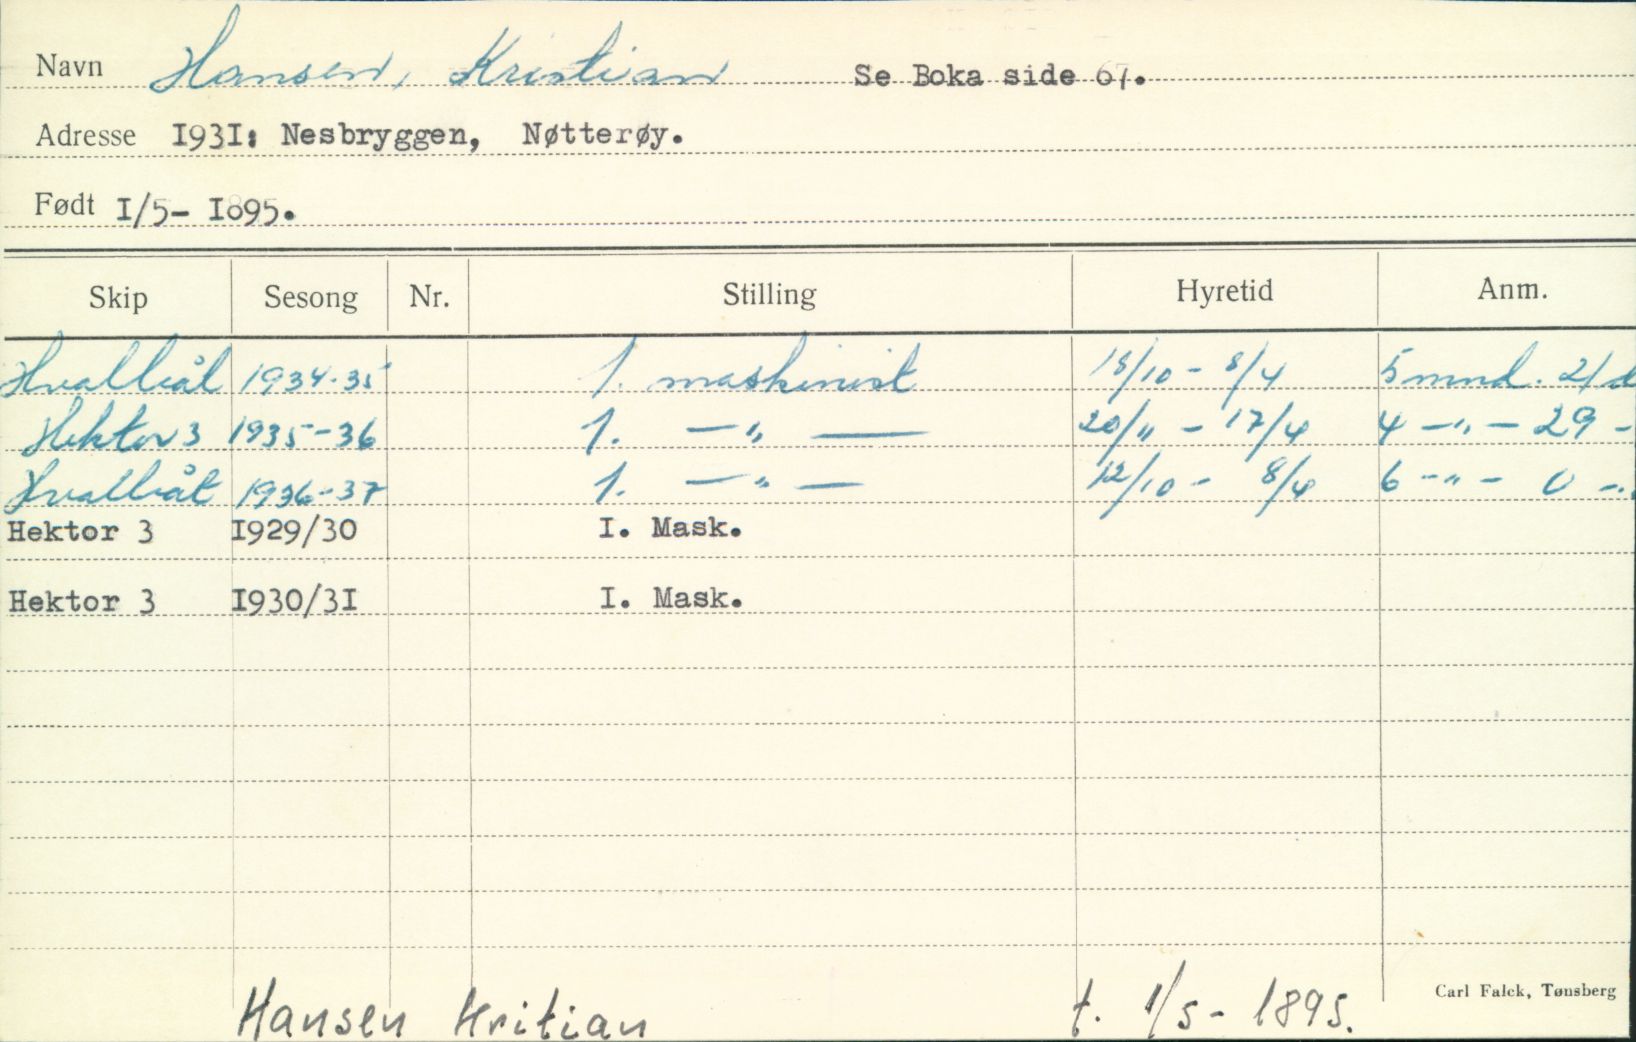 Navn Hansen, Kristian Se Boka side 67.
Adresse I93I: Nesbryggen, Nøtterøy.
Født I/5- I895.
Skip Sesong Nr. Stilling Hyretid Anm.
Hvalbåt 1934-35 1. maskinist 18/10 - 8/4 5 mnd. 21 d
Hektor 3 1935-36 1. —"— 20/11 - 17/4 4 —"— 29 -
Hvalbåt 1936-37 1. —"— 12/10 - 8/4 6 —"— 0 -"
Hektor 3 I929/30 I. Mask.
Hektor 3 I930/3I I. Mask.
Carl Falck, Tønsberg
Hansen Kritian f. 1/5 - 1895.